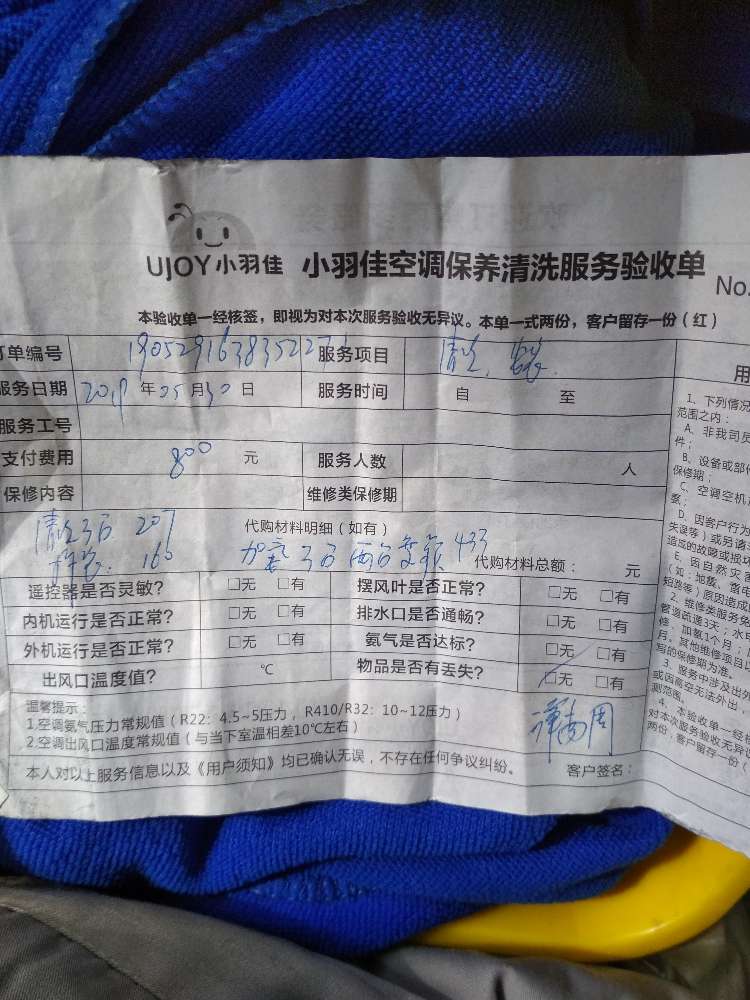 UJOY小羽佳 小羽佳空调保养清洗服务验收单
No.
本验收单一经核签，即视为对本次服务验收无异议。本单一式两份，客户留存一份（红）
订单编号 服务项目 清洗、
服务日期 2019 年 05 月 30 日 服务时间 自 至
服务工号
支付费用 800 元 服务人数 人
保修内容 维修类保修期
清洗 207
代购材料明细（如有）
160
433 代购材料总额： 元
遥控器是否灵敏？ □无 □有 摆风叶是否正常？ □无 □有
内机运行是否正常？ □无 □有 排水口是否通畅？ □无 □有
外机运行是否正常？ □无 □有 氨气是否达标？ □无 □有
出风口温度值？ ℃ 物品是否有丢失？ □无 □有
温馨提示：
1.空调氨气压力常规值（R22：4.5~5压力，R410/R32：10~12压力）
2.空调出风口温度常规值（与当下室温相差10℃左右）
本人对以上服务信息以及《用户须知》均已确认无误，不存在任何争议纠纷。 客户签名：
用
1、下列情况
范围之内：
A、非我司员
件；
B、设备或部件
保修期；
C、空调空机
D、因客户行为
失误等）或另请
造成的故障或损坏
E、因自然灾害
短路等）原因造成
2、维修类服务免
管道疏通3天；水
修：加氨1个月；
月。其他维修项目
写的保修期为准。
3、服务中涉及出外
或因高空无法外出，
测范围。
4、本验收单一经核
对本次服务验收无异议
两份，客户留存一份（